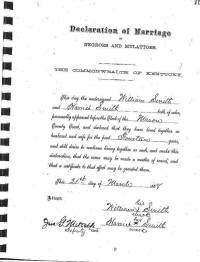 Declaration of Marriage
OF
NEGROES AND MULATTOES.
THE COMMONWEALTH OF KENTUCKY.
This day the undersigned William Smith
and Smith both of color,
personally appeared before the Clerk of the Mason
County Court, and declared that they have lived together as
husband and wife for the past Fourteen years,
and still desire to continue living together as such, and make this
declaration, that the same may be made a matter of record, and
that a certificate to that effect may be granted them.
This 21st day of March 186
Attest:
his
William X Smith
mark
her
Smith
mark